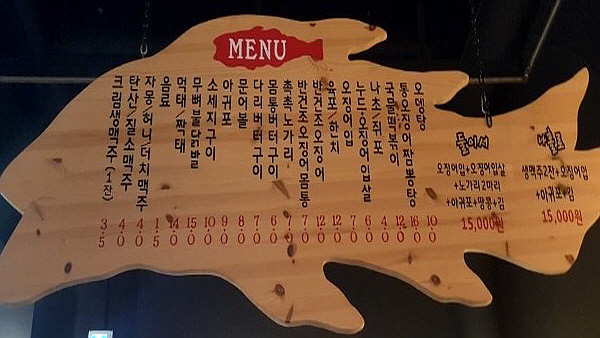 MENU
오뎅탕 10.0
통오징어짬뽕탕 16.0
국물떡볶이 12.0
나초/쥐포 4.0
누드오징어입살 6.0
오징어입 7.0
육포/한치 12.0
반건조오징어 12.0
반건조오징어몸통 7.0
촉촉노가리
몸통버터구이 6.0
다리버터구이 7.0
문어볼 8.0
아귀포 9.0
소세지구이 10.0
무뼈불닭발 15.0
먹태/짝태 14.0
음료 1.5
자몽/허니/더치맥주 4.0
탄산/질소맥주 4.0
크림생맥주(1잔) 3.5
둘이서
오징어입+오징어입살
+노가리2마리
+아귀포+땅콩+김
15,000원
나홀로
생맥주2잔+오징어입
+아귀포+김
15,000원